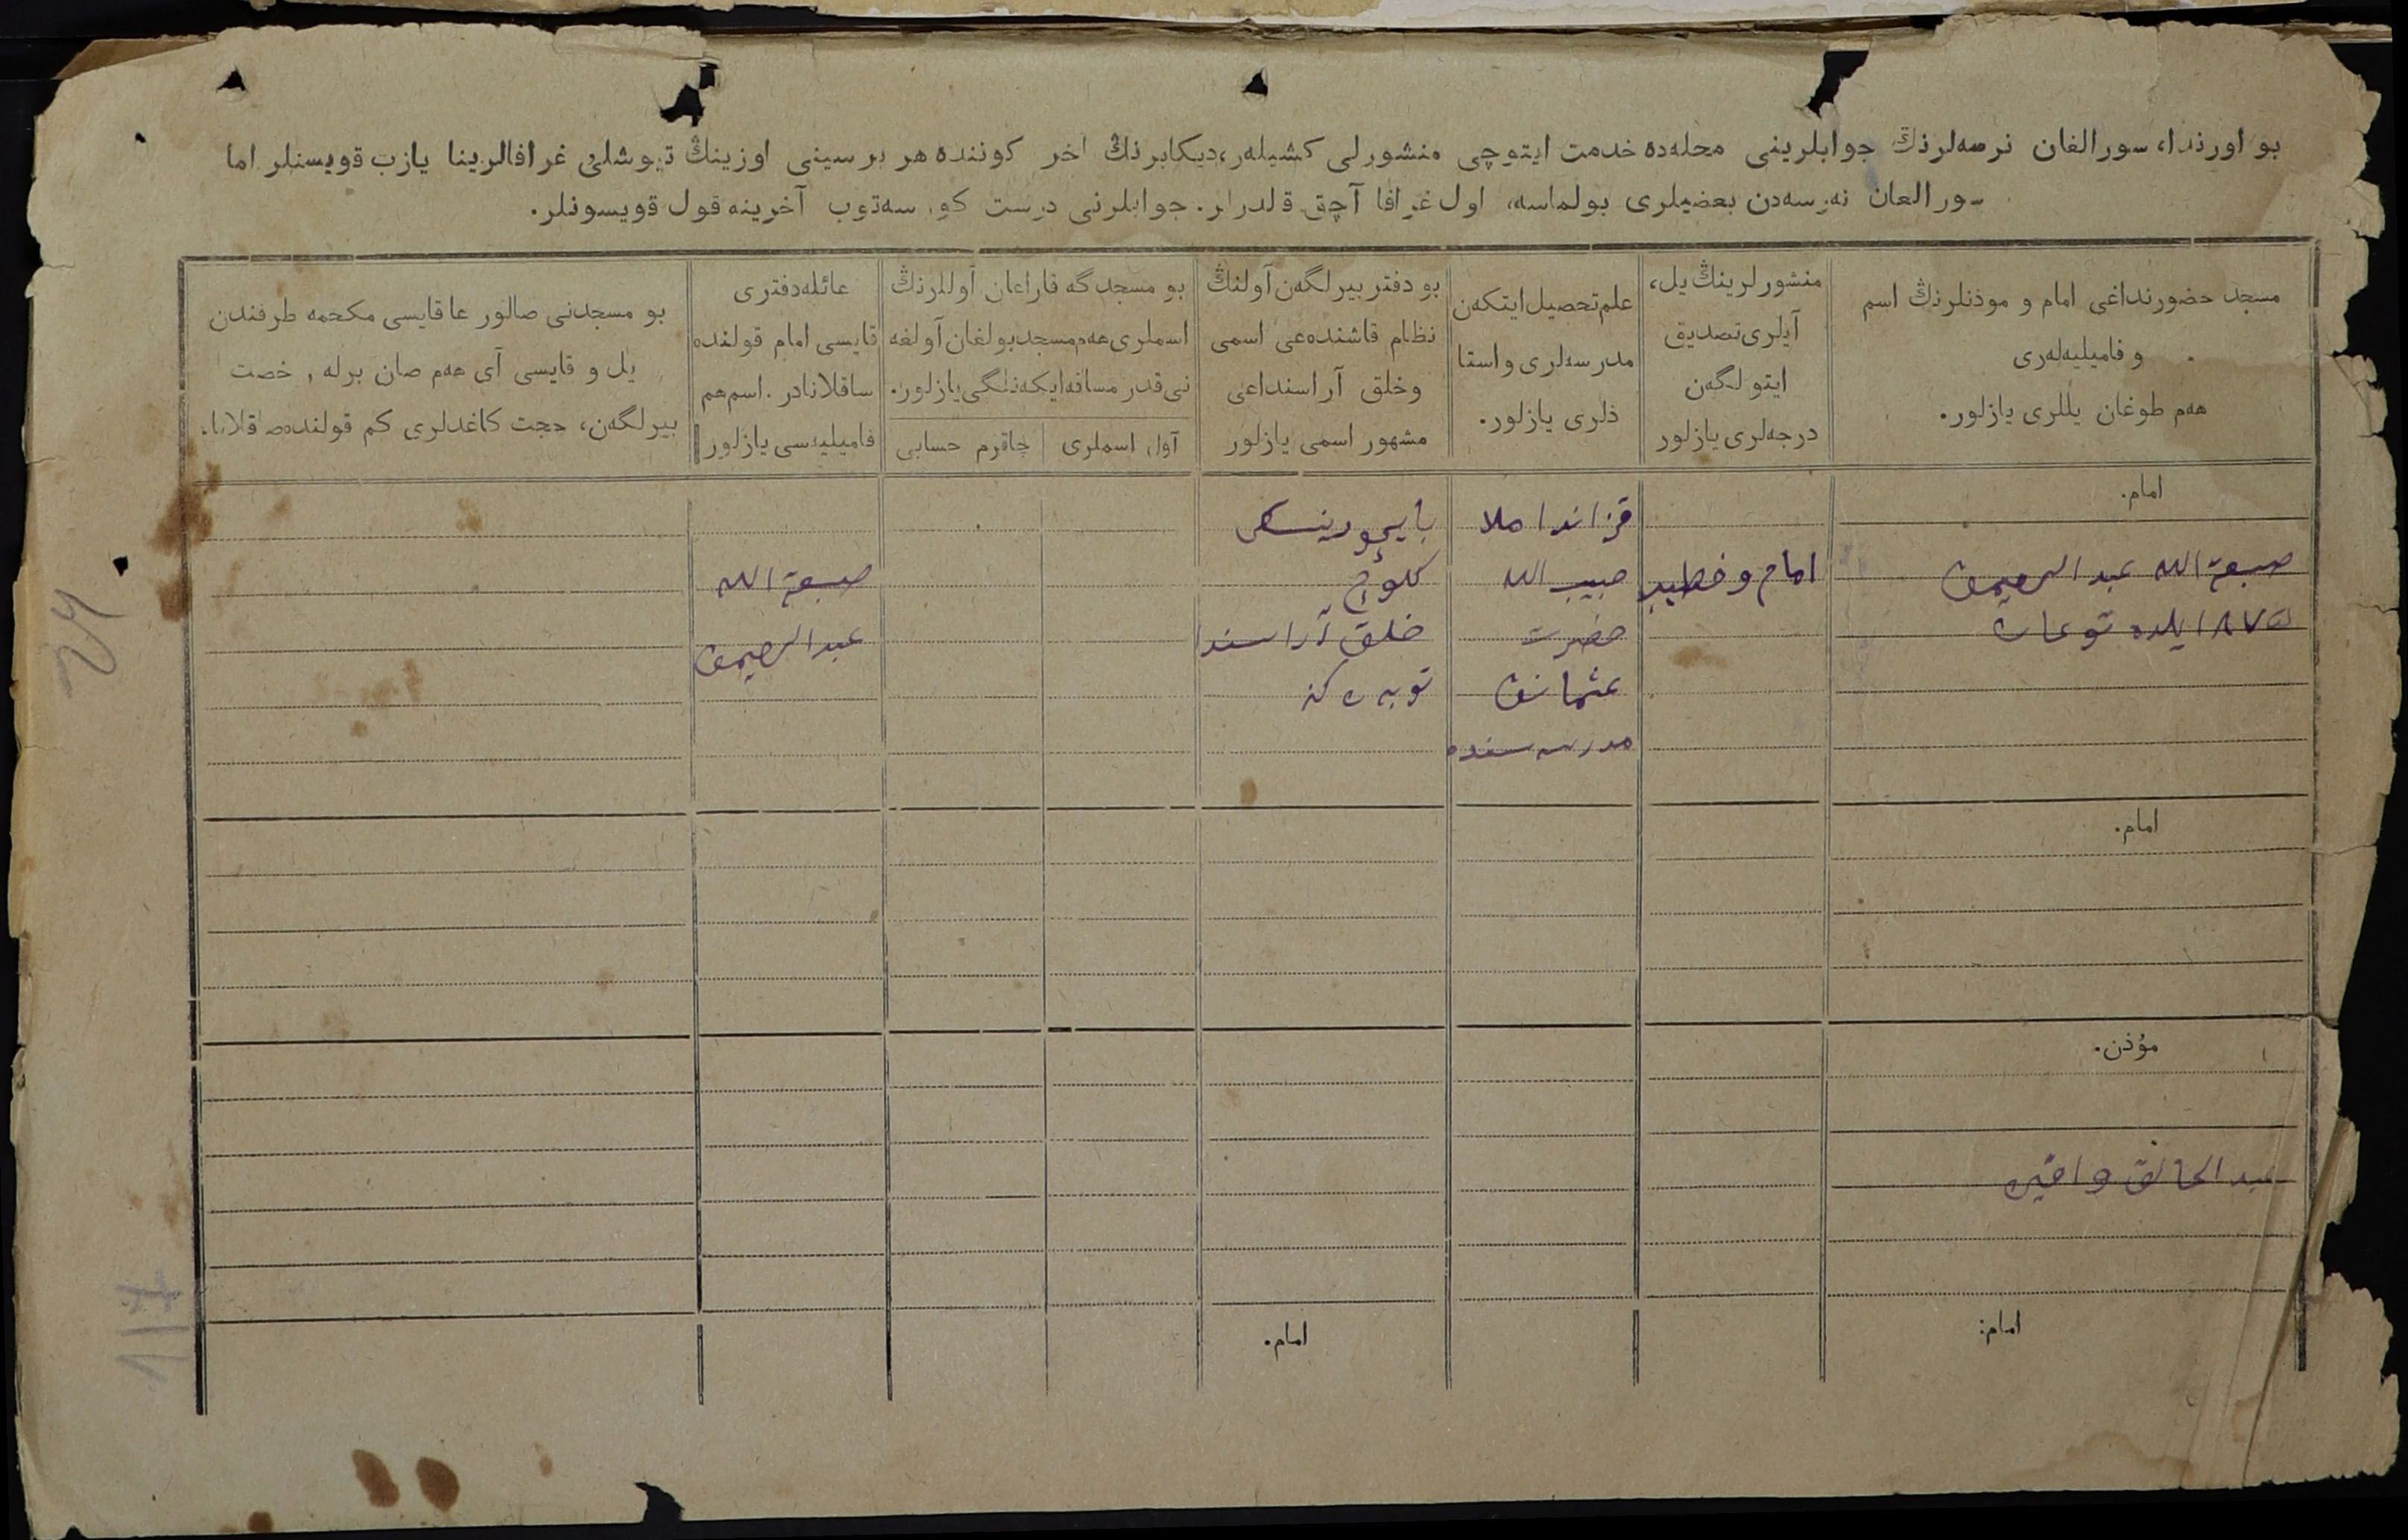 بو اورندا، سورالغان نرصه‌لرنڭ جوابلرینی محله‌ده خدمت ایتوچی منشورلی کشیلەر، دیکابرنڭ اخر کوننده هر برسینی اوزینڭ تیوشلی غرافالرینا یازب قویسنلر اما
سورالعان نەرسەدن بعضیلری بولماسه، اول غرافا آچق قلدرلر. جوابلرنی درست کورسەتوب آخرینه قول قویسونلر.
مسجد حضورنداغی امام و موذنلرنڭ اسم
و فامیلیه‌لەری
هەم طوغان یللری یازلور.
منشورلرینڭ یل،
آیلری تصدیق
ایتولگەن
درجه‌لری یازلور
علم تحصیل ایتکەن
مدرسه‌لری و استا
ذلری یازلور.
بو دفتر بیرلگەن آولنڭ
نظام قاشنده‌عی اسمی
وخلق آراسنداعی
مشهور اسمی یازلور
بو مسجدگه قاراعان آوللرنڭ
اسملری هەم مسجد بولغان آولغه
نی قدر مسافه ایکەنلگی یازلور.
آول اسملری
چاقرم حسابی
عائله دفتری
قایسی امام قولنده
ساقلانادر. اسم هم
فامیلیه‌سی یازلور
بو مسجدنی صالور عا قایسی مکحمه طرفندن
یل و قایسی آی هەم صان برله رخصت
بیرلگەن، حجت کاغدلری کم قولنده صاقلانا.
امام.
صبغة الله عبد الرحیمف
۱۸۷۵ ایلده توعان
امام و خطیب
قزاندا ملا
حبیب الله
حضرت
عثمانف
مدرسه سنده
کلوچ
خلق آراسندا
صبغة الله
عبد الرحیمف
امام.
مؤذن.
عبد الخالق
امام:
امام.
117